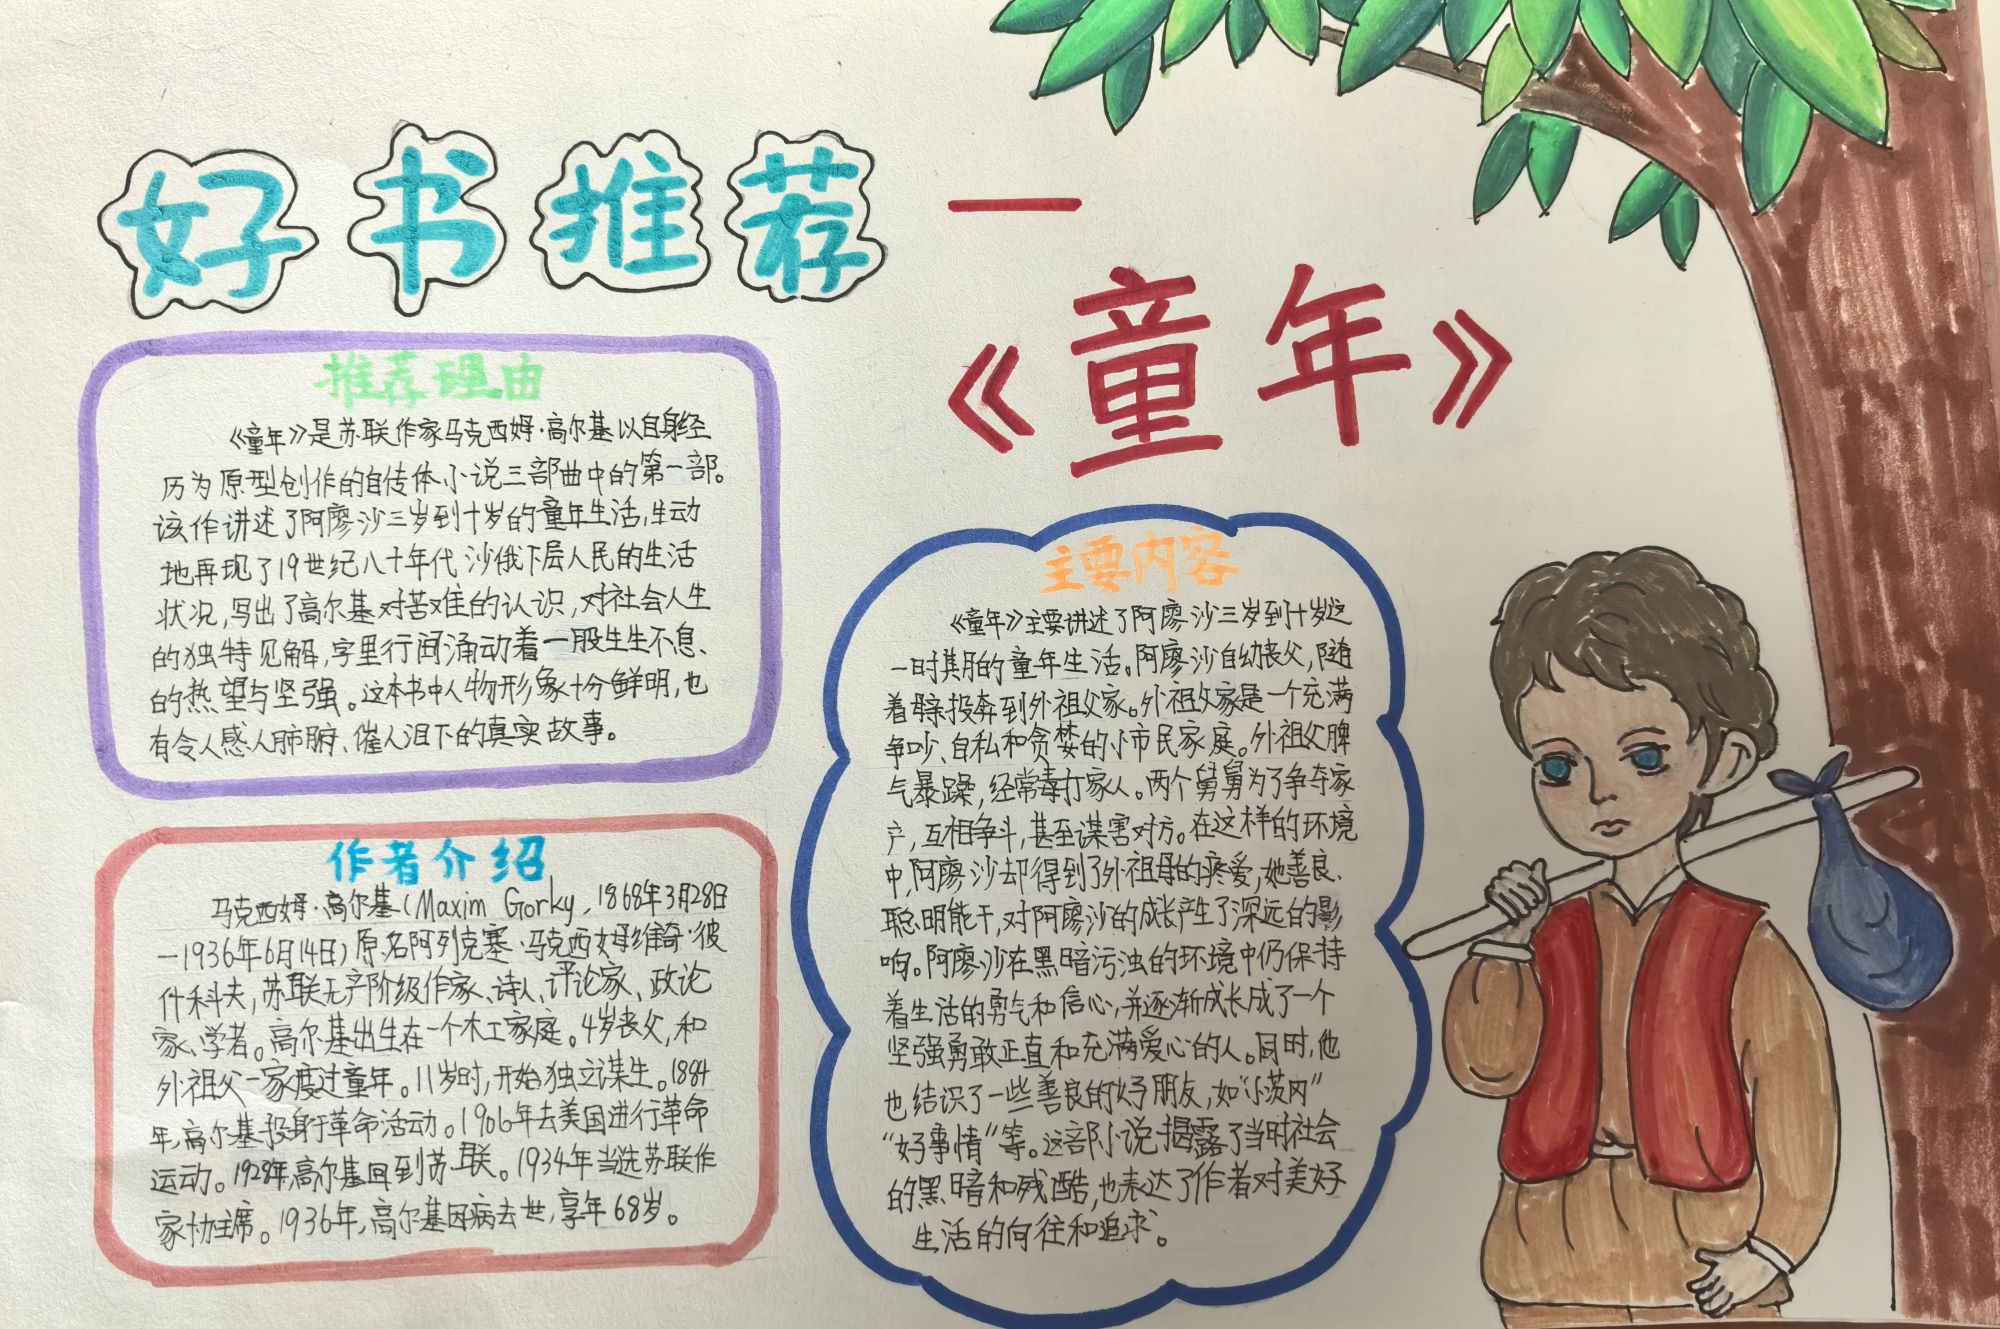 好书推荐
—
《童年》
推荐理由
《童年》是苏联作家马克西姆·高尔基以自身经
历为原型创作的自传体小说三部曲中的第一部。
该作讲述了阿廖沙三岁到十岁的童年生活,生动
地再现了19世纪八十年代沙俄下层人民的生活
状况,写出了高尔基对苦难的认识,对社会人生
的独特见解,字里行间涌动着一股生生不息、
的热望与坚强。这本书中人物形象十分鲜明,也
有令人感人肺腑、催人泪下的真实故事。
作者介绍
马克西姆·高尔基(Maxim Gorky,1868年3月28日
—1936年6月14日)原名阿列克塞·马克西姆维奇·彼
什科夫,苏联无产阶级作家、诗人、评论家、政论
家、学者。高尔基出生在一个木工家庭。4岁丧父,和
外祖父一家度过童年。11岁时,开始独立谋生。1884
年,高尔基投身于革命活动。1906年去美国进行革命
运动。1928年,高尔基回到苏联。1934年当选苏联作
家协主席。1936年,高尔基因病去世,享年68岁。
主要内容
《童年》主要讲述了阿廖沙三岁到十岁这
一时期的童年生活。阿廖沙自幼丧父,随
着母亲投奔到外祖父家。外祖父家是一个充满
争吵、自私和贪婪的小市民家庭。外祖父脾
气暴躁,经常毒打家人。两个舅舅为了争夺家
产,互相争斗,甚至谋害对方。在这样的环境
中,阿廖沙却得到了外祖母的疼爱,她善良、
聪明能干,对阿廖沙的成长产生了深远的影
响。阿廖沙在黑暗污浊的环境中仍保持
着生活的勇气和信心,并逐渐成长成了一个
坚强勇敢正直和充满爱心的人。同时,他
也结识了一些善良的好朋友,如“小茨冈”
“好事情”等。这部小说揭露了当时社会
的黑暗和残酷,也表达了作者对美好
生活的向往和追求。